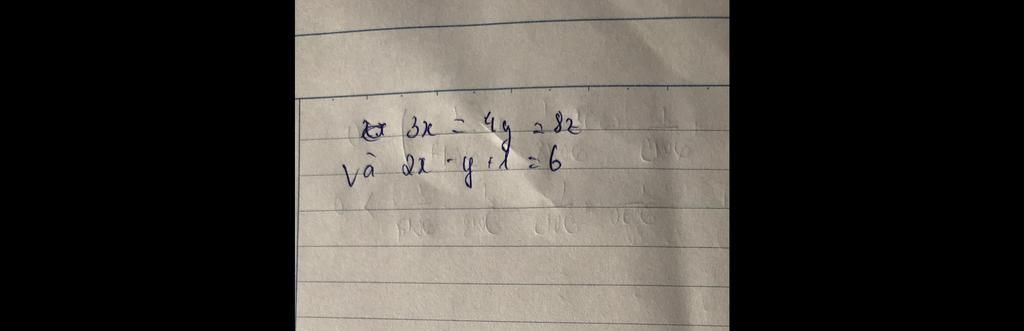 3x = 4y = 8z
Và 2x - y + 1 = 6